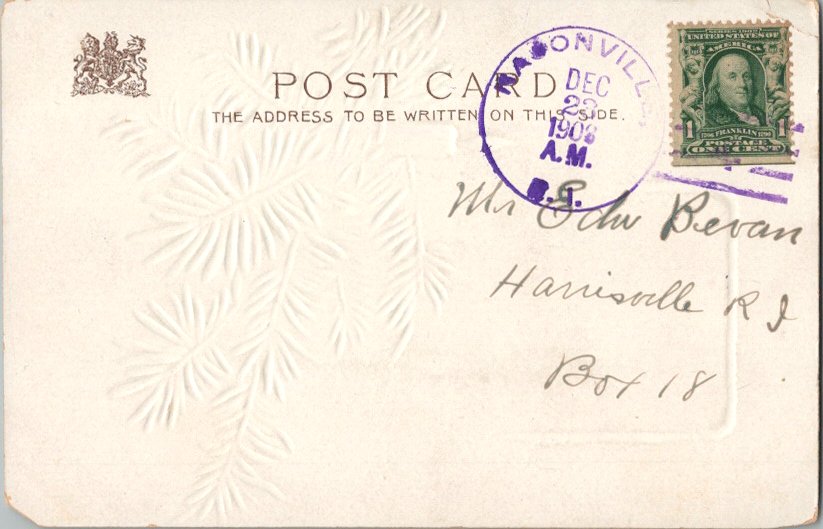 POST CARD
THE ADDRESS TO BE WRITTEN ON THIS SIDE.
NASONVILLE
DEC
23
A.M.
R.I.
SERIES 1902
UNITED STATES OF
AMERICA
1 1
1706 FRANKLIN 1790
POSTAGE
ONE CENT
Mr Edw Bevan
Harrisville R I
Box 18